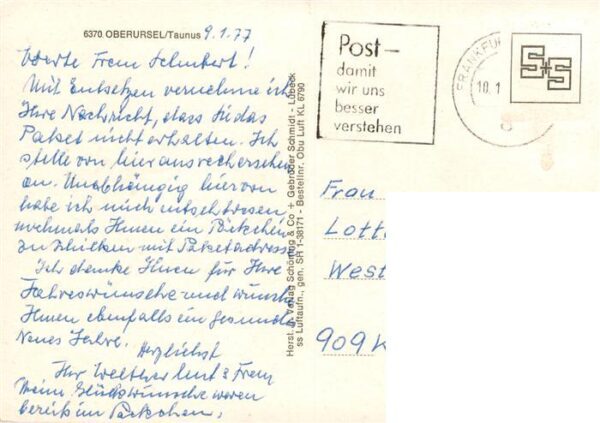 6370 OBERURSEL/Taunus 9.1.77
Werte Frau Schubert!
Mit Entsetzen vernehme ich
Ihre Nachricht, dass Sie das
Paket nicht erhalten. Ich
stelle von hier aus recherschen
an. Unabhängig hiervon
habe ich mich entschlossen
nochmals Ihnen ein Päckchen
zu schicken mit Paketadresse
Ich danke Ihnen für Ihre
Jahreswünsche und wünsche
Ihnen ebenfalls ein gesundes
Neues Jahr. Herzlichst
Ihr Walther und Frau
Meine Glückwünsche waren
bereits im Päckchen.
Herst. u. Verlag Schöning & Co + Gebrüder Schmidt - Lübeck
ss Luftaufn., gen. SH 1-38171 - Bestellnr. Obu Luft KL 6790
Post-
damit
wir uns
besser
verstehen
FRANKFU
10.1
S+S
Frau
Lott
West
909 K